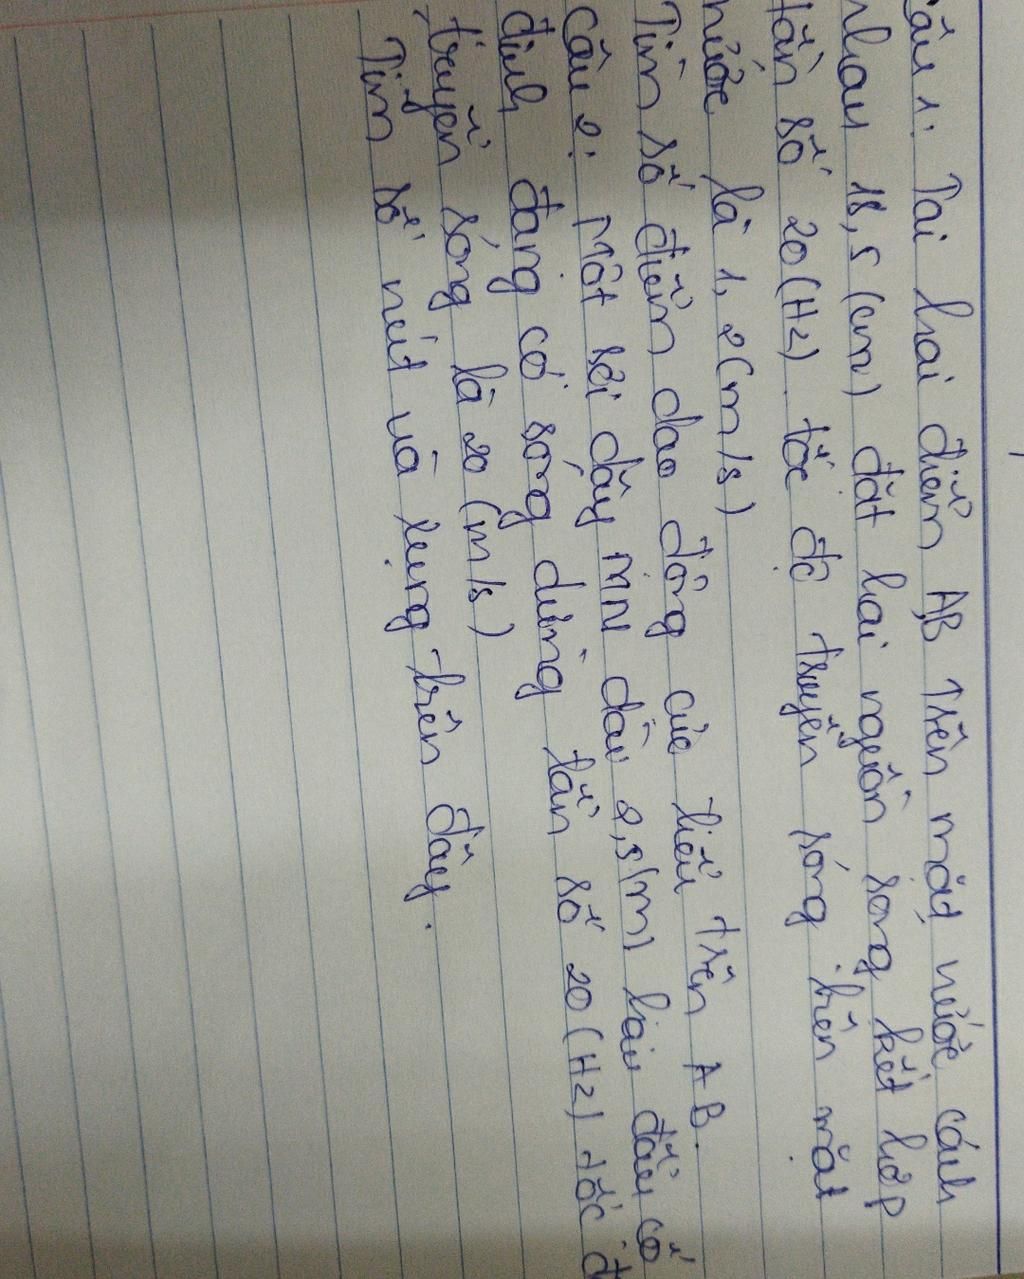 Câu 1: Tại hai điểm A,B trên mặt nước cách
nhau 18,5 (cm) đặt hai nguồn sóng kết hợp
tần số 20 (Hz). tốc độ truyền sóng trên mặt
nước là 1,2 (m/s)
Tìm số điểm dao động cực tiểu trên AB.
Câu 2: Một sợi dây MN dài 2,5 (m) hai đầu cố
định đang có sóng dừng tần số 20 (Hz) tốc đ
truyền sóng là 20 (m/s)
Tìm số nút và bụng trên dây.